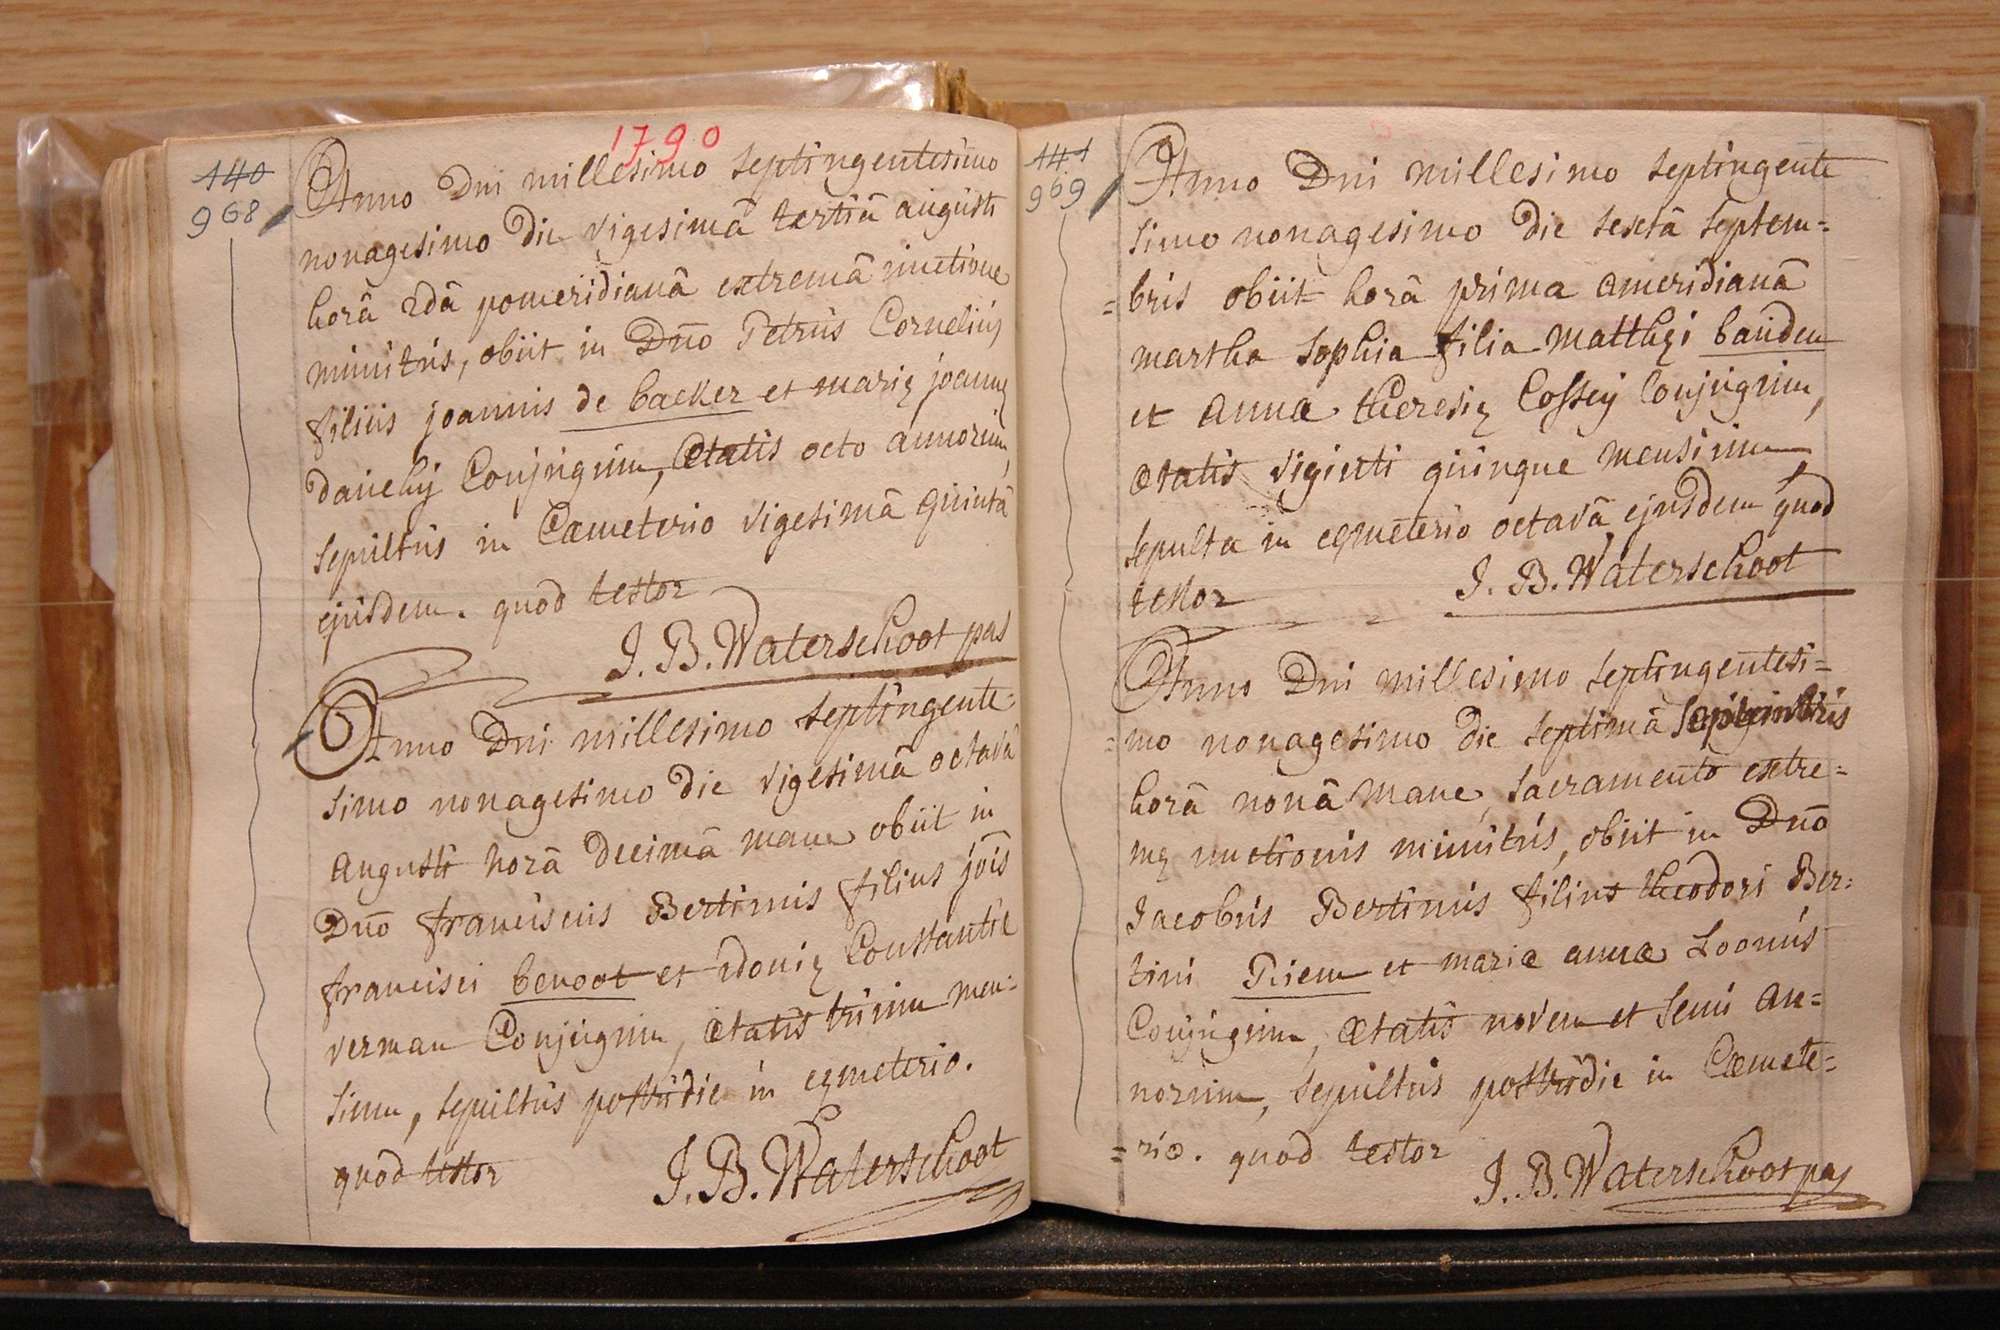 1790
140
968
Anno Dni millesimo septingentesimo
nonagesimo die vigesimâ tertiâ augusti
horâ 2dâ pomeridianâ extremâ unctione
munitus, obiit in Dño Petrus Cornelius
filius joannis de backer et mariȩ joannȩ
danchy Conjugum, Ætatis octo annorum,
sepultus in Cæmeterio vigesimâ quintâ
ejusdem. quod testor
J. B. Waterschoot pas
Anno Dni millesimo septingente=
simo nonagesimo die vigesimâ octavâ
Augusti horâ decimâ mane obiit in
Dño franciscus Bertinus filius jöis
francisci benoot et idoniȩ Constantiæ
verman Conjugum, Ætatis trium men=
sium, sepultus postridie in cȩmeterio.
quod testor J. B. Waterschoot
141
969
Anno Dni millesimo septingente
simo nonagesimo die sextâ septem=
=bris obiit horâ prima ameridianâ
martha sophia filia matthȩi bauden
et annæ theresiȩ Cossey Conjugum,
ætatis viginti quinque mensium,
sepulta in cȩmeterio octavâ ejusdem quod
testor J. B. Waterschoot
Anno Dni millesimo septingentesi=
=mo nonagesimo die septimâ septembris
horâ nonâ mane, sacramento extre=
mȩ unctionis munitus, obiit in Dño
Jacobus Bertinus filius theodori Ber=
tini Riem et mariæ annæ Loonus
Conjugum, Ætatis novem et semi an=
norum, sepultus postridie in Cæmete=
=rio. quod testor
J. B. Waterschoot pas